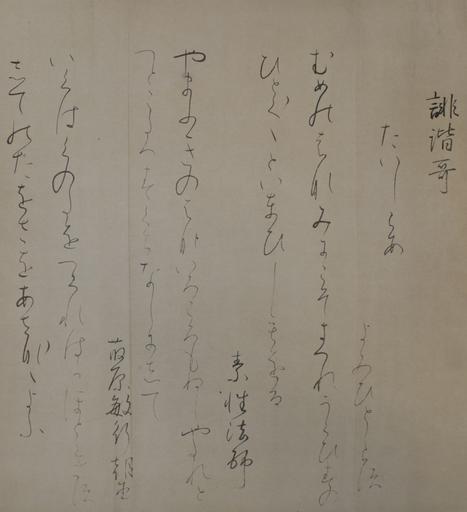 誹諧哥
たいしらす
よみひとしらす
むめのはなみにこそきつれうくひすの
ひとく〱といとひしもをる
素性法師
やまふきのはないろころもぬしやたれと
とへとこたへすくちなしにして
藤原敏行朝臣
いくはくのたをつくれはかほとゝきす
してのたをさをあさな〱よふ